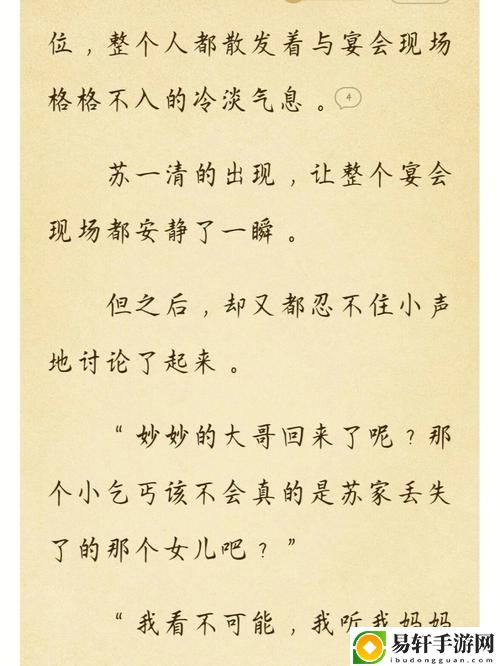 位，整个人都散发着与宴会现场
格格不入的冷淡气息。4
苏一清的出现，让整个宴会
现场都安静了一瞬。
但之后，却又都忍不住小声
地讨论了起来。
“妙妙的大哥回来了呢？那
个小乞丐该不会真的是苏家丢失
了的那个女儿吧？”
“我看不可能，我听我妈妈
易轩手游网
ibudongguan.com